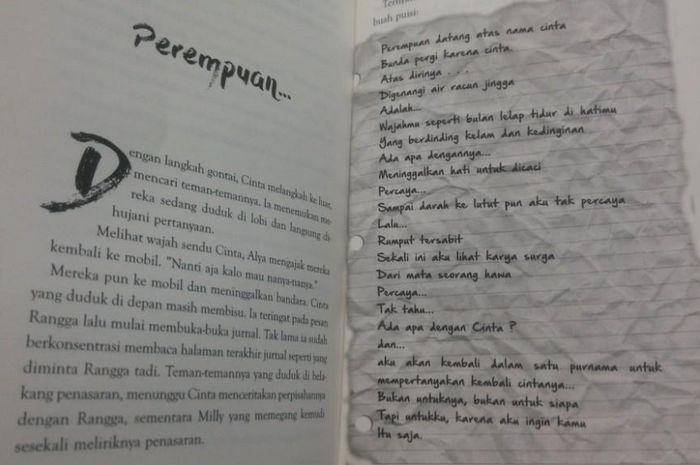 Perempuan...
Dengan langkah gontai, Cinta melangkah ke luar,
mencari teman-temannya. Ia menemukan me-
reka sedang duduk di lobi dan langsung di-
hujani pertanyaan.
Melihat wajah sendu Cinta, Alya mengajak mereka
kembali ke mobil. "Nanti aja kalo mau nanya-nanya."
Mereka pun ke mobil dan meninggalkan bandara. Cinta
yang duduk di depan masih membisu. Ia teringat pada pesan
Rangga lalu mulai membuka-buka jurnal. Tak lama ia sudah
berkonsentrasi membaca halaman terakhir jurnal seperti yang
diminta Rangga tadi. Teman-temannya yang duduk di bela-
kang penasaran, menunggu Cinta menceritakan perpisahannya
dengan Rangga, sementara Milly yang memegang kemudi
sesekali meliriknya penasaran.
buah puisi:
Perempuan datang atas nama cinta
Bunda pergi karena cinta.
Atas dirinya . . .
Digenangi air racun jingga
Adalah...
Wajahmu seperti bulan lelap tidur di hatimu
Yang berdinding kelam dan kedinginan
Ada apa dengannya...
Meninggalkan hati untuk dicaci
Percaya...
Sampai darah ke lutut pun aku tak percaya
Lalu...
Rumput tersabit
Sekali ini aku lihat karya surga
Dari mata seorang hawa
Percaya...
Tak tahu...
Ada apa dengan Cinta ?
dan...
aku akan kembali dalam satu purnama untuk
mempertanyakan kembali cintanya...
Bukan untuknya, bukan untuk siapa
Tapi untukku, karena aku ingin kamu
Itu saja.